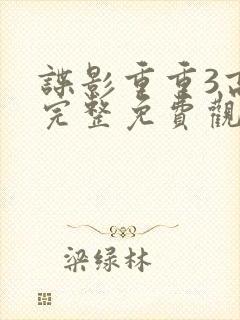 諜影重重3,高
完整免費觀
梁绿林